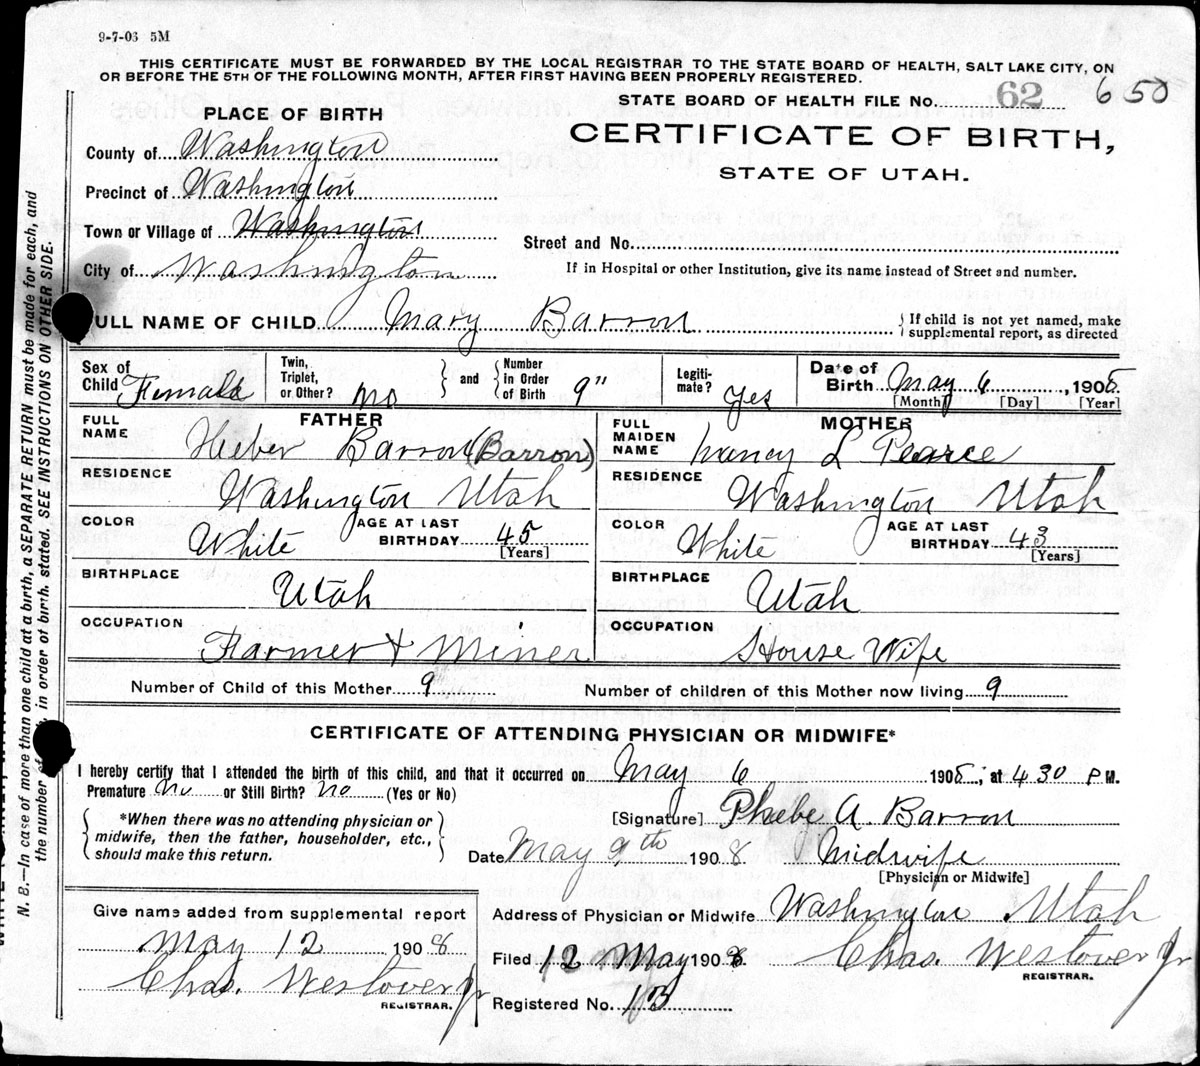 9-7-03 5M
THIS CERTIFICATE MUST BE FORWARDED BY THE LOCAL REGISTRAR TO THE STATE BOARD OF HEALTH, SALT LAKE CITY, ON
OR BEFORE THE 5TH OF THE FOLLOWING MONTH, AFTER FIRST HAVING BEEN PROPERLY REGISTERED.
STATE BOARD OF HEALTH FILE No. 62 650
PLACE OF BIRTH
CERTIFICATE OF BIRTH,
STATE OF UTAH.
County of Washington
Precinct of Washington
Town or Village of Washington
Street and No.
City of Washington
If in Hospital or other Institution, give its name instead of Street and number.
FULL NAME OF CHILD Mary Barron
If child is not yet named, make
supplemental report, as directed
Sex of Child Female
Twin, Triplet, or Other? no
and
Number in Order of Birth 9"
Legitimate? yes
Date of Birth May 6, 1908
[Month] [Day] [Year]
FATHER
FULL NAME Heber Barron (Barron)
RESIDENCE
Washington Utah
COLOR White
AGE AT LAST BIRTHDAY 45
[Years]
BIRTHPLACE
Utah
OCCUPATION
Farmer & Miner
MOTHER
FULL MAIDEN NAME Nancy L Pearce
RESIDENCE
Washington Utah
COLOR White
AGE AT LAST BIRTHDAY 43
[Years]
BIRTHPLACE
Utah
OCCUPATION
House Wife
Number of Child of this Mother 9
Number of children of this Mother now living 9
CERTIFICATE OF ATTENDING PHYSICIAN OR MIDWIFE*
I hereby certify that I attended the birth of this child, and that it occurred on May 6 1908, at 430 P M.
Premature no or Still Birth? no (Yes or No)
*When there was no attending physician or
midwife, then the father, householder, etc.,
should make this return.
[Signature] Phoebe A. Barron
Date May 9th 1908 Midwife
[Physician or Midwife]
Give name added from supplemental report
May 12 1908
Chas. Westover Jr
REGISTRAR.
Address of Physician or Midwife Washington Utah
Filed 12 May 1908 Chas. Westover Jr
REGISTRAR.
Registered No. 13
N. B.—In case of more than one child at a birth, a SEPARATE RETURN must be made for each, and
the number of in order of birth, stated. SEE INSTRUCTIONS ON OTHER SIDE.